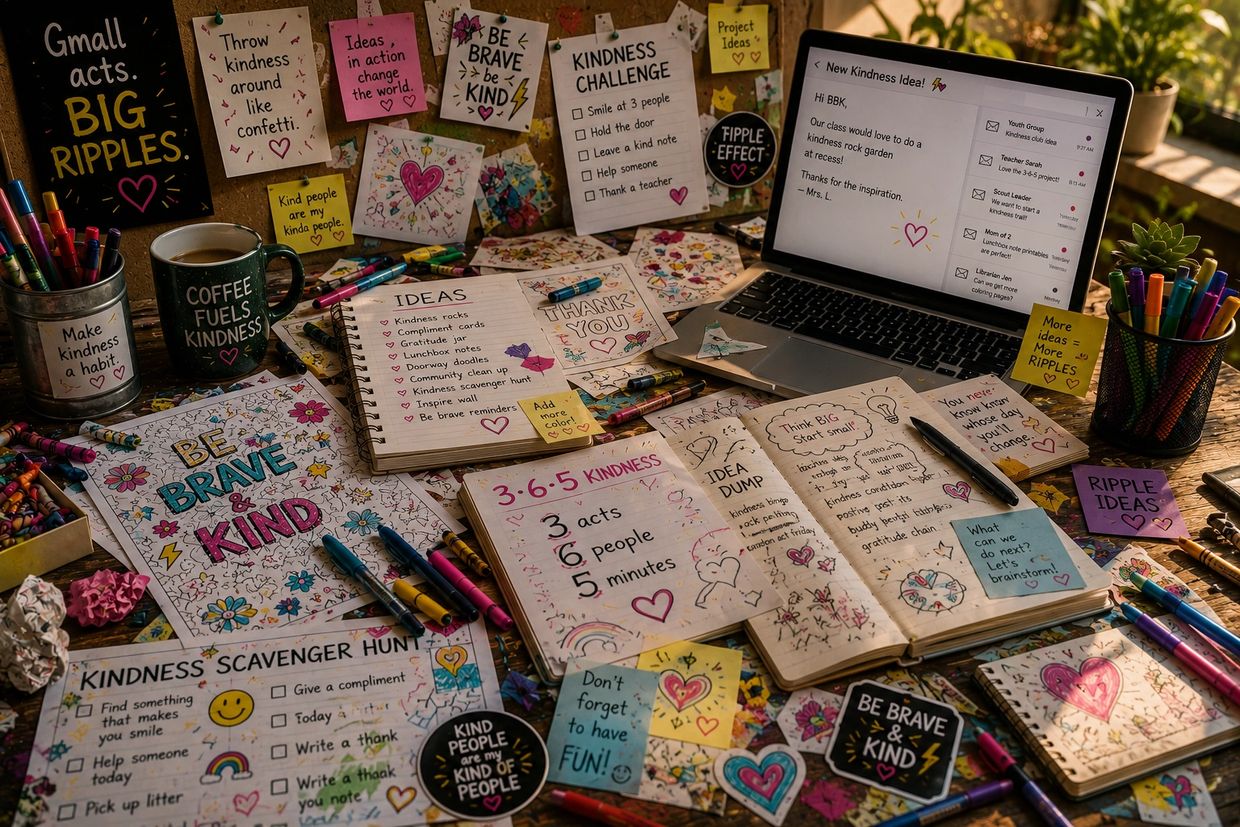 Gmall
acts.
BIG
RIPPLES.
Throw
kindness
around
like
confetti.
Ideas
in action
change
the world.
BE
BRAVE
be
KIND
KINDNESS
CHALLENGE
Smile at 3 people
Hold the door
Leave a kind note
Help someone
Thank a teacher
Project
Ideas
FIPPLE
EFFECT
Kind people
are my
kinda people.
Make
kindness
a habit.
COFFEE
FUELS
KINDNESS
New Kindness Idea!
Hi BBK,
Our class would love to do a
kindness rock garden
at recess!
Thanks for the inspiration.
— Mrs. L.
Youth Group
Kindness club idea
Teacher Sarah
Love the 3-6-5 project!
Scout Leader
We want to start a
kindness trail!
Yesterday
Mom of 2
Lunchbox note printables
are perfect!
Yesterday
Librarian Jen
Can we get more
coloring pages?
IDEAS
Kindness rocks
Compliment cards
Gratitude jar
Lunchbox notes
Doorway doodles
Community clean up
Kindness scavenger hunt
Inspire wall
Be brave reminders
Add
more
color!
THANK
YOU
More
ideas =
More
RIPPLES
BE
BRAVE
&
KIND
3·6·5 KINDNESS
3 acts
6 people
5 minutes
IDEA
DUMP
kindness bingo
Think BIG
Start small
gratitude chain
You never
know
whose day
you'll
change.
What
can we
do next?
Let's
brainstorm!
RIPPLE
IDEAS
KINDNESS SCAVENGER HUNT
Find something
that makes
you smile
Help someone
today
Pick up litter
Give a compliment
Today a
Write a thank
Write a thaak
you note
KIND
PEOPLE
are my
KIND OF
PEOPLE
Don't
forget
to have
FUN!
BE BRAVE
&
KIND